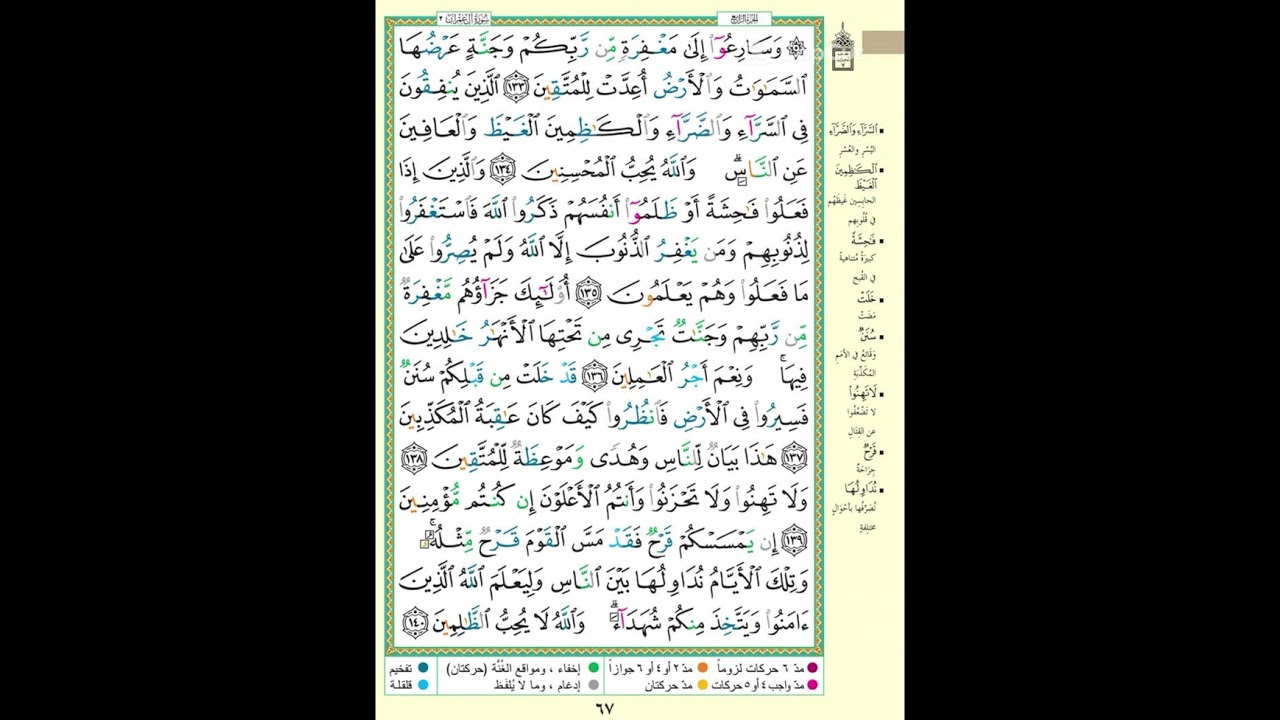 سُورَةُ آلِ عِمْرَانَ ٣
الجزء الرابع
۞ وَسَارِعُوٓا۟ إِلَىٰ مَغْفِرَةٍ مِّن رَّبِّكُمْ وَجَنَّةٍ عَرْضُهَا
ٱلسَّمَـٰوَٰتُ وَٱلْأَرْضُ أُعِدَّتْ لِلْمُتَّقِينَ ١٣٣ ٱلَّذِينَ يُنفِقُونَ
فِى ٱلسَّرَّآءِ وَٱلضَّرَّآءِ وَٱلْكَـٰظِمِينَ ٱلْغَيْظَ وَٱلْعَافِينَ
عَنِ ٱلنَّاسِ ۗ وَٱللَّهُ يُحِبُّ ٱلْمُحْسِنِينَ ١٣٤ وَٱلَّذِينَ إِذَا
فَعَلُوا۟ فَـٰحِشَةً أَوْ ظَلَمُوٓا۟ أَنفُسَهُمْ ذَكَرُوا۟ ٱللَّهَ فَٱسْتَغْفَرُوا۟
لِذُنُوبِهِمْ وَمَن يَغْفِرُ ٱلذُّنُوبَ إِلَّا ٱللَّهُ وَلَمْ يُصِرُّوا۟ عَلَىٰ
مَا فَعَلُوا۟ وَهُمْ يَعْلَمُونَ ١٣٥ أُو۟لَـٰٓئِكَ جَزَآؤُهُم مَّغْفِرَةٌ
مِّن رَّبِّهِمْ وَجَنَّـٰتٌ تَجْرِى مِن تَحْتِهَا ٱلْأَنْهَـٰرُ خَـٰلِدِينَ
فِيهَا ۚ وَنِعْمَ أَجْرُ ٱلْعَـٰمِلِينَ ١٣٦ قَدْ خَلَتْ مِن قَبْلِكُمْ سُنَنٌ
فَسِيرُوا۟ فِى ٱلْأَرْضِ فَٱنظُرُوا۟ كَيْفَ كَانَ عَـٰقِبَةُ ٱلْمُكَذِّبِينَ
١٣٧ هَـٰذَا بَيَانٌ لِّلنَّاسِ وَهُدًى وَمَوْعِظَةٌ لِّلْمُتَّقِينَ ١٣٨
وَلَا تَهِنُوا۟ وَلَا تَحْزَنُوا۟ وَأَنتُمُ ٱلْأَعْلَوْنَ إِن كُنتُم مُّؤْمِنِينَ
١٣٩ إِن يَمْسَسْكُمْ قَرْحٌ فَقَدْ مَسَّ ٱلْقَوْمَ قَرْحٌ مِّثْلُهُۥ ۚ
وَتِلْكَ ٱلْأَيَّامُ نُدَاوِلُهَا بَيْنَ ٱلنَّاسِ وَلِيَعْلَمَ ٱللَّهُ ٱلَّذِينَ
ءَامَنُوا۟ وَيَتَّخِذَ مِنكُمْ شُهَدَآءَ ۗ وَٱللَّهُ لَا يُحِبُّ ٱلظَّـٰلِمِينَ ١٤٠
ٱلسَّرَّآءِ وَٱلضَّرَّآءِ
اليُسْرِ والعُسْرِ
ٱلْكَـٰظِمِينَ
ٱلْغَيْظَ
الحابِسِينَ غَيْظَهُم
في قُلُوبِهِم
فَـٰحِشَةً
كَبِيرَةً مُتَنَاهِيةً
في القُبْحِ
خَلَتْ
مَضَتْ
سُنَنٌ
وَقَائِعُ في الأُمَمِ
المُكَذِّبَةِ
لَا تَهِنُوا۟
لا تَضْعُفُوا
عن القِتَالِ
قَرْحٌ
جِرَاحَةٌ
نُدَاوِلُهَا
نُصَرِّفُها بأَحْوَالٍ
مختلِفةٍ
مدّ ٦ حركات لزوماً
مدّ ٢ أو ٤ أو ٦ جوازاً
إخفاء ، ومواقع الغُنَّة (حركتان)
تفخيم
مدّ واجب ٤ أو ٥ حركات
مدّ حركتان
إدغام ، وما لا يُلفَظ
قلقلة
٦٧